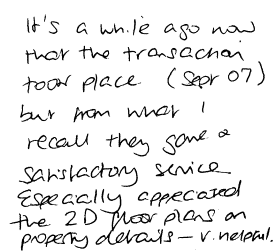 It's a while ago now
that the transaction
took place (Sept 07)
but from what I
recall they gave a
satisfactory service
Especially appreciated
the 2D floor plans on
property details - v. helpful.